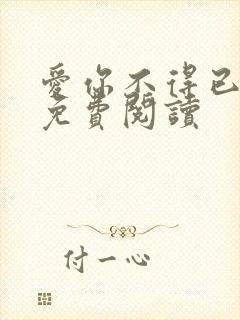 愛你不得已
免費閱讀
付一心